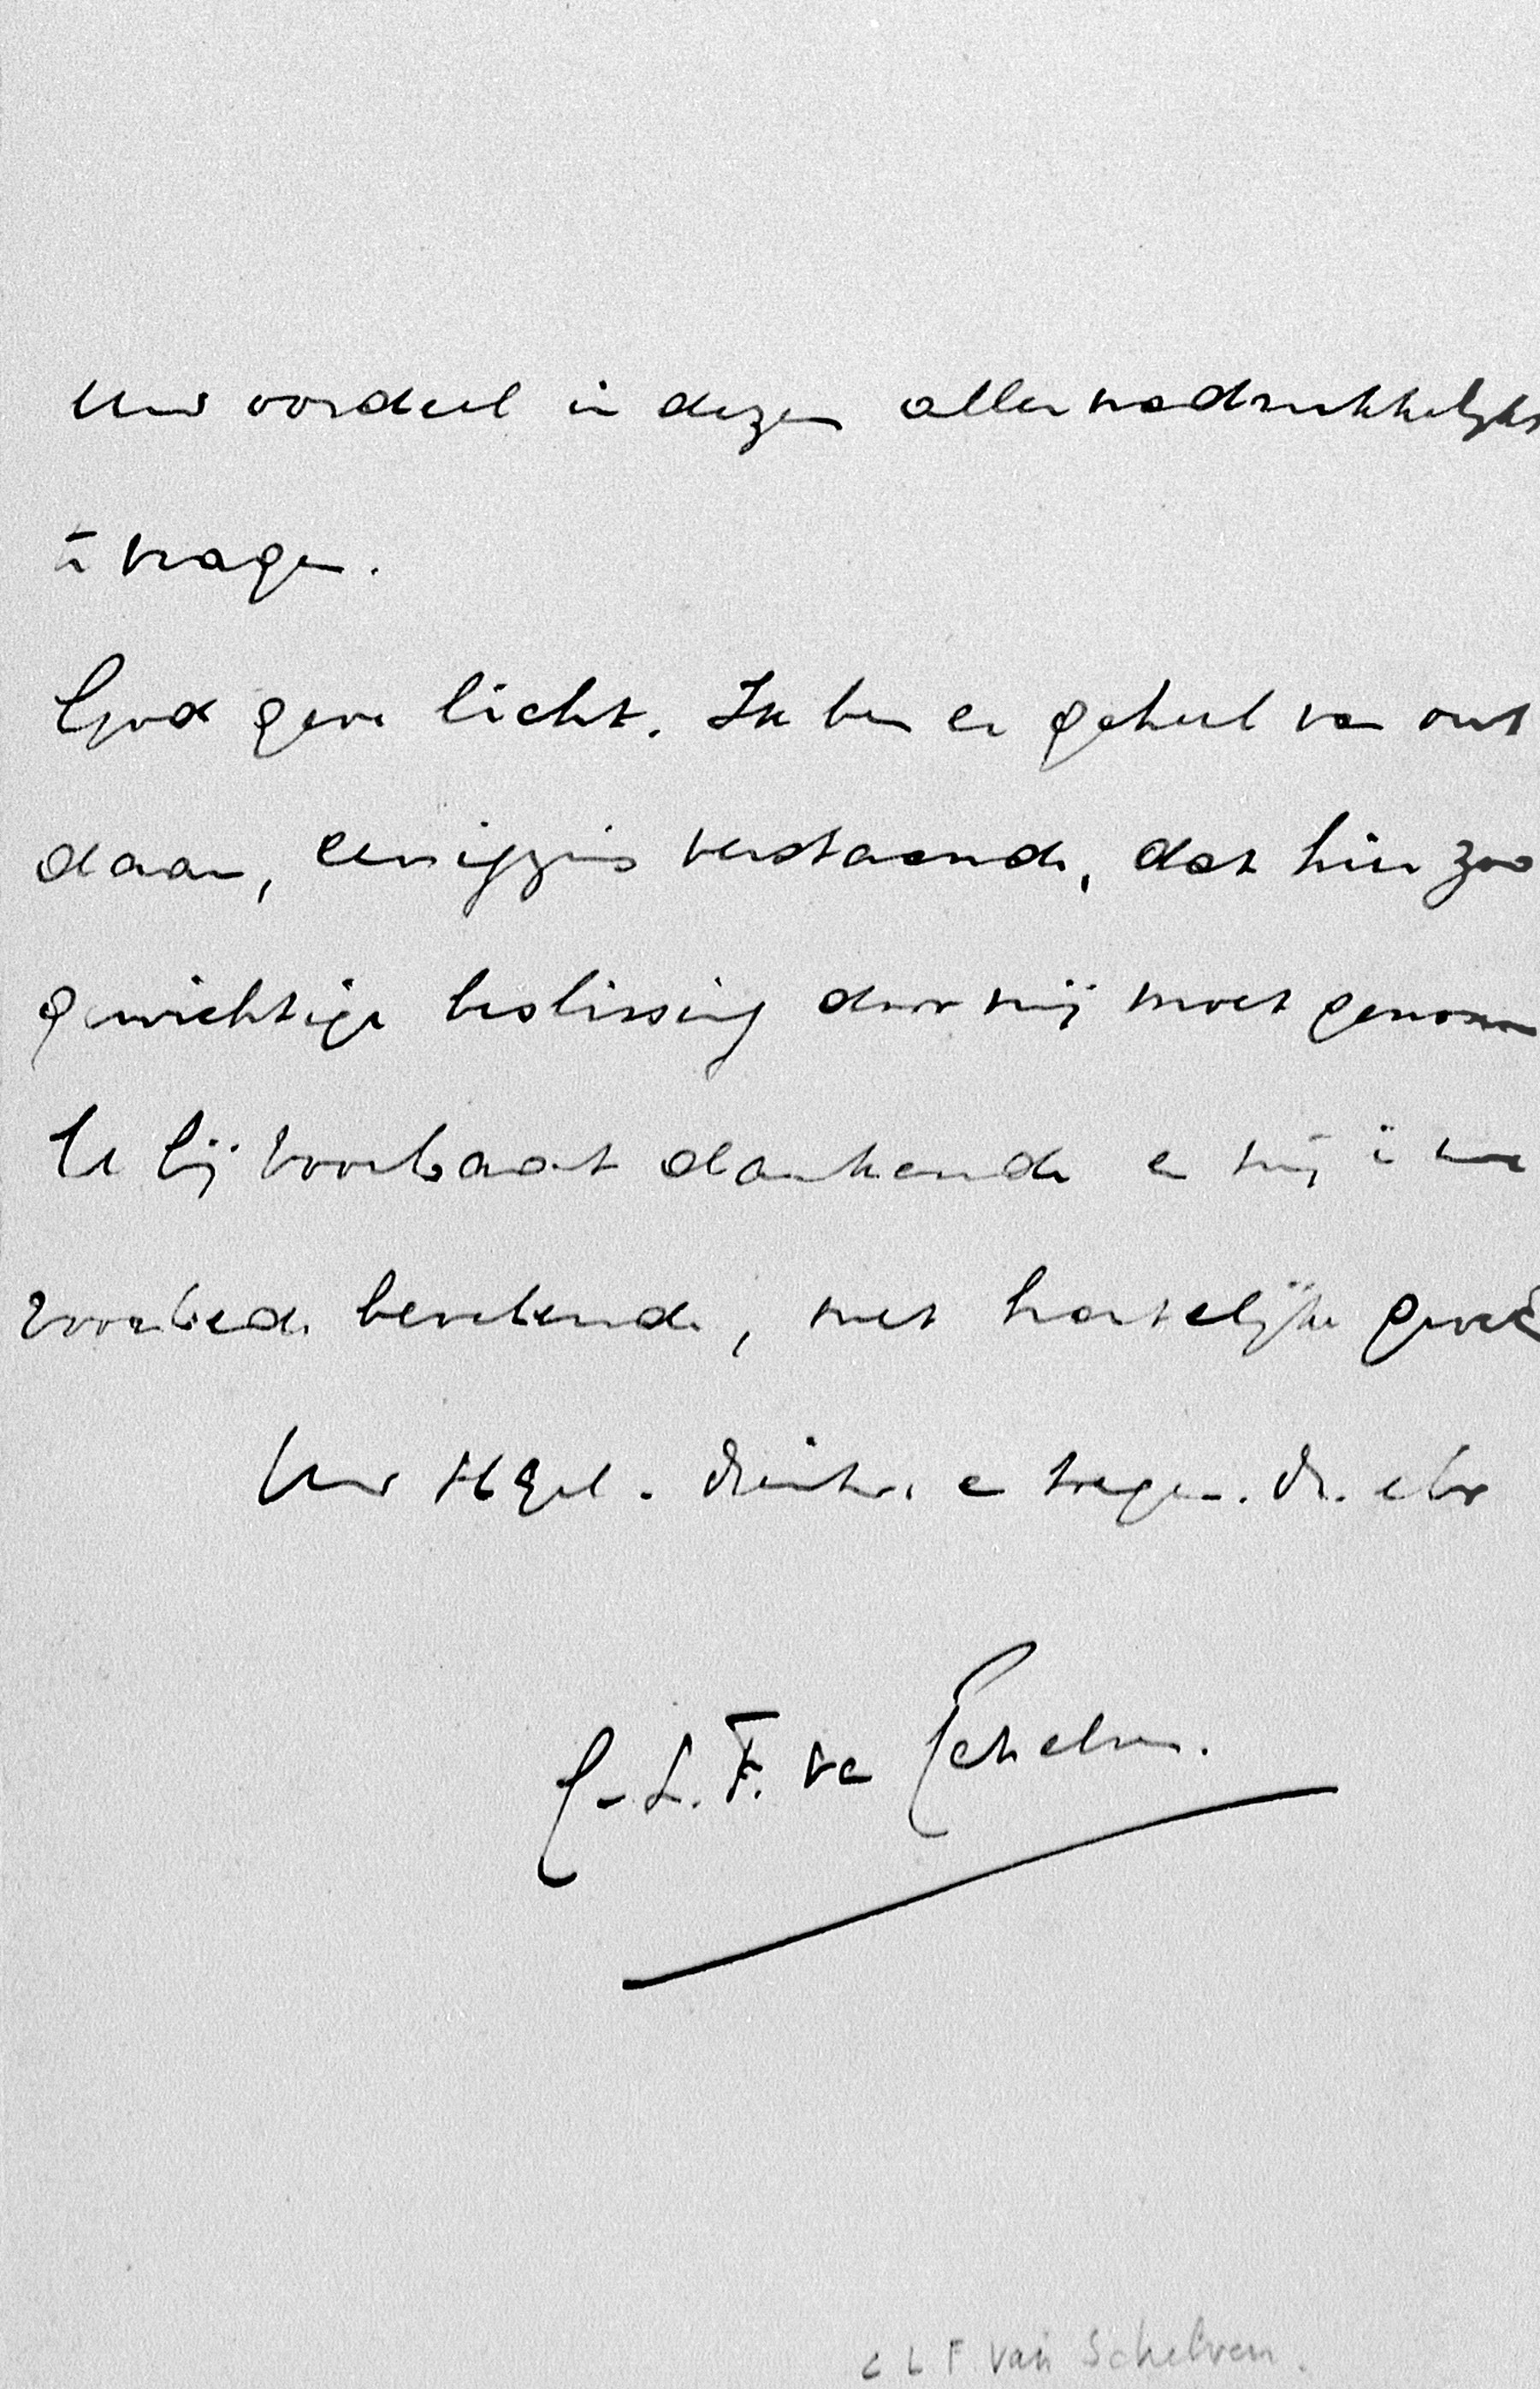 Uw oordeel in dezen allernadrukkelijkst
te vragen.
God geve licht. Ik ben er geheel van ont
daan, eenigzins verstaande, dat hier zoo
gewichtige beslissing door mij moet genomen
U bij voorbaat dankende en mij in uwe
voorbede bevelende, met hartelijke groet
Uw HGel. dienstv. en toegen. dr. en br
C. L. F. van Schelven.
C L F van Schelven.